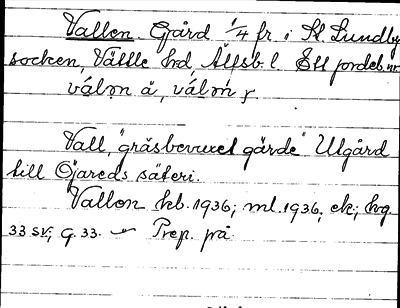 Vallen Gård 1/4 fr. i St. Lundby
socken, Vättle hd, Älfsb. l. Ett jordeb.nr
vál̥n å, vál̥n
Vall, "gräsbevuxet gärde" Utgård
till Öjareds säteri.
Vallen kb. 1936; ml. 1936, ek; hvg.
33 SV; g. 33. — Prep. på